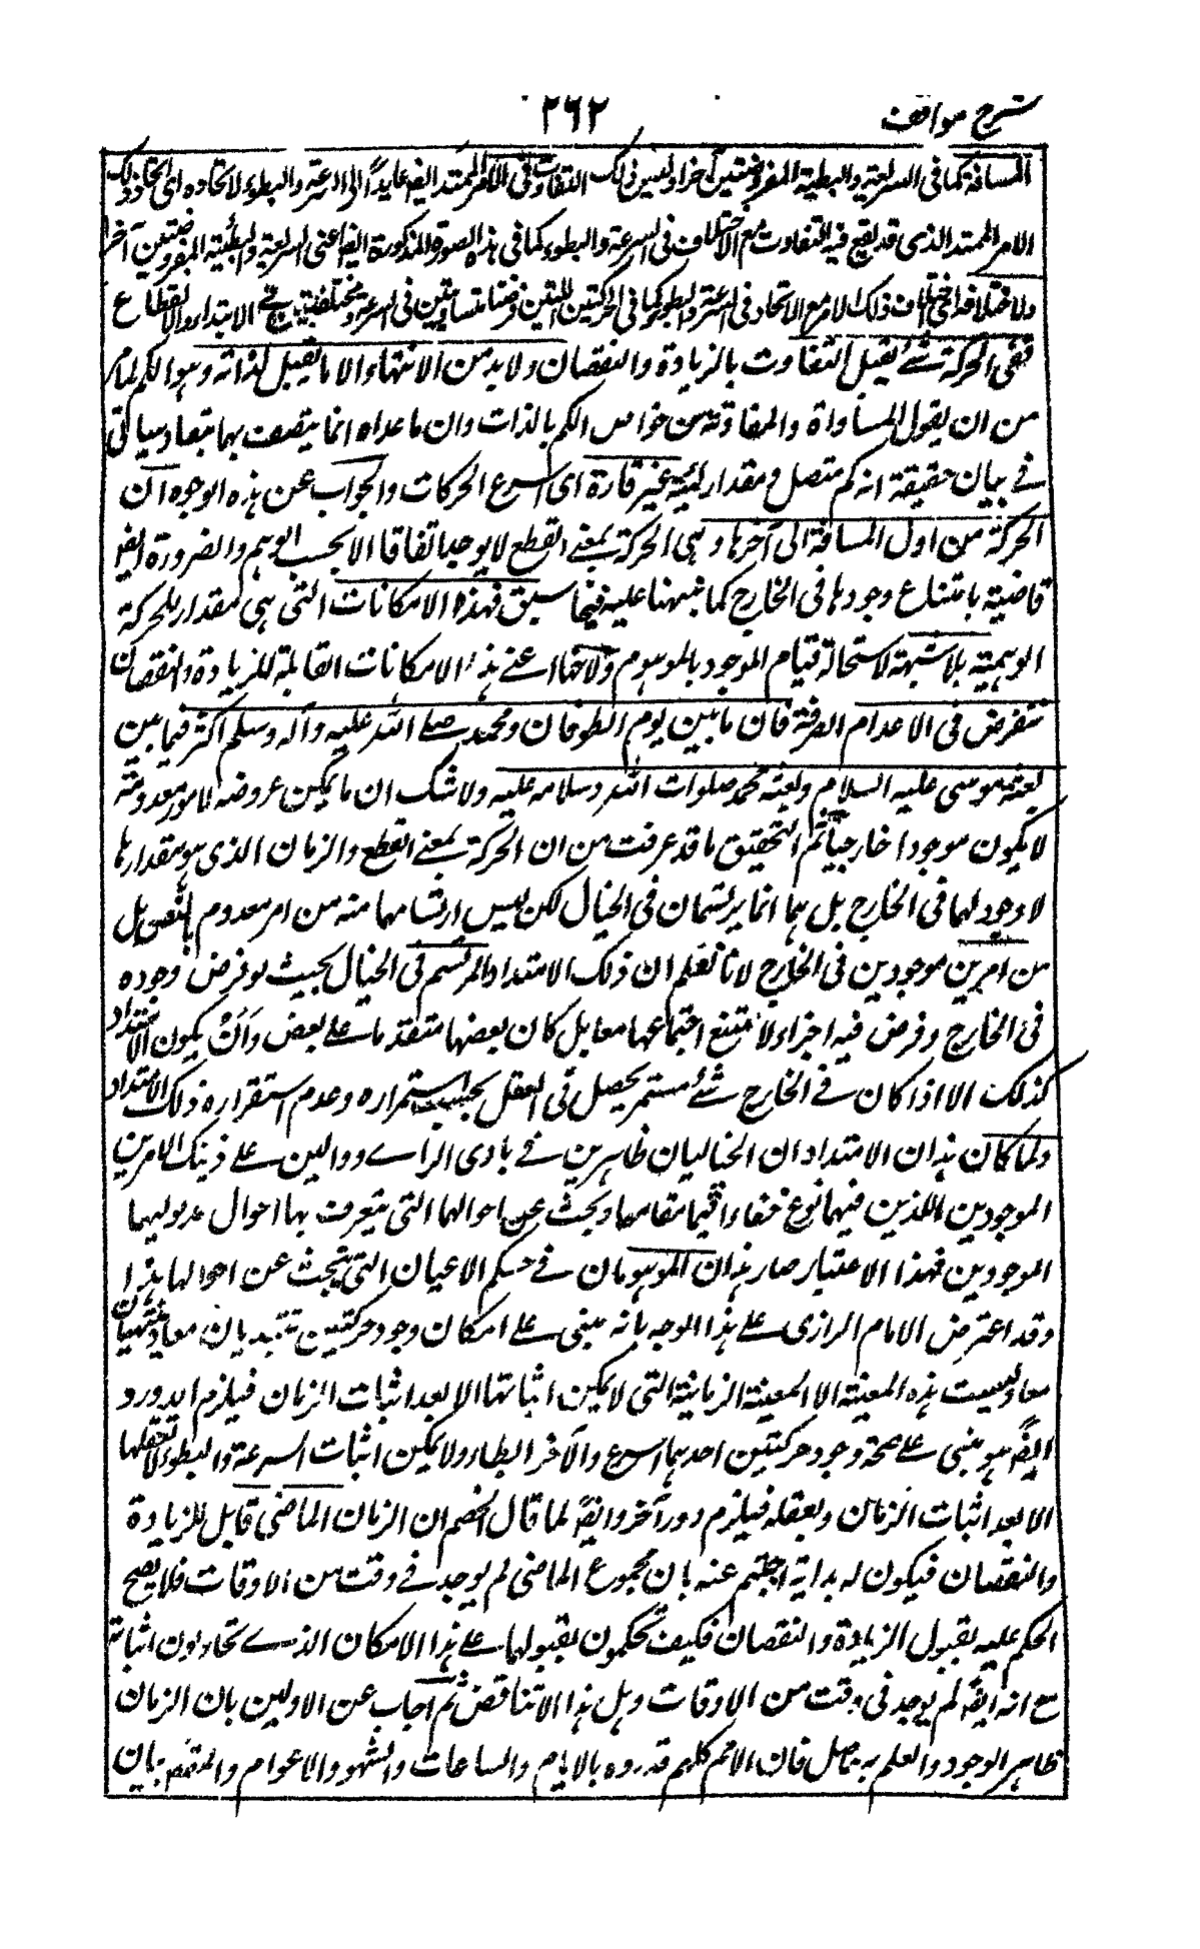 شرح مواقف
٢٦٢
المسافة كما فى السريعة والبطيئة المفروضتين آخرا وليس ذلك التفاوت فى الامر الممتد ايضا عايداً الى السرعة والبطوء لاتحاده اى اتحاد ذلك
الامر الممتد الذى قد يقع فيه التفاوت مع الاختلاف فى السرعة والبطوء كما فى هذه الصورة المذكورة ايضا اعنى السريعة والبطيئة المفروضتين آخرا
ولاختلافه اى اختلاف ذلك الامر مع الاتحاد فى السرعة والبطوء كما فى الحركتين اللتين فرضنا متساويتين فى السرعة ومختلفتين فى الابتداء والانقطاع
ففى الحركة شئ يقبل التفاوت بالزيادة والنقصان ولا بد من الانتهاء الى ما يقبل لذاته وهو الكم لما مر
من ان يقول المساواة والمفاوتة من خواص الكم بالذات وان ما عداه انما يتصف بهما تبعا وسياتى
فى بيان حقيقة انه كم متصل ومقدار لهيئة غير قارة اى اسرع الحركات والجواب عن هذه الوجوه ان
الحركة من اول المسافة الى آخرها وهى الحركة بمعنى القطع لا يوجد اتفاقا الا بحسب الوهم والضرورة ايضا
قاضية بامتناع وجودها فى الخارج كما نبهنا عليه فيما سبق فهذه الامكانات التى هى كمقدار للحركة
الوهمية بلا شبهة لاستحالة قيام الموجود بالموهوم ولانها اعنى هذه الامكانات القابلة للزيادة والنقصان
تتفرض فى الاعدام الصرفة فان ما بين يوم الطوفان ومحمد صلى الله عليه وآله وسلم اكثر فيما بين
بعثة موسى عليه السلام وبعثة محمد صلوات الله وسلامه عليه ولا شك ان ما يمكن عروضه للامور معدومة
لا يكون موجودا خارجياً ثم التحقيق ما قد عرفت من ان الحركة بمعنى القطع والزمان الذى هو مقدارها
لا وجود لهما فى الخارج بل هما انما يرتسمان فى الخيال لكن ليس ارتسامهما منه من امر معدوم بالنص بل
من امرين موجودين فى الخارج لانا نعلم ان ذلك الامتداد المرتسم فى الخيال بحيث لو فرض وجوده
فى الخارج وفرض فيه اجزاء لامتنع اجتماعها معا بل كان بعضها متقدما على بعض وان يكون الامتداد
كذلك الا اذا كان فى الخارج شئ مستمر يحصل فى العقل بحسب استمراره وعدم استقراره ذلك الامتداد
ولما كان هذان الامتدادان الخياليان ظاهرين فى بادى الراے ودالين على ذينك الامرين
الموجودين اللذين فيهما نوع خفاء اقيما مقامهما وبحث عن احوالهما التى يتعرف بها احوال مدلوليهما
الموجودين فهذا الاعتبار صار هذان الموهومان فى حكم الاعيان التى يبحث عن احوالها هذا
وقد اعترض الامام الرازى على هذا الوجه بانه مبنى على امكان وجود حركتين تبتديان معا وتنتهيان
معا وليست هذه المعية الا المعية الزمانية التى لا يمكن اثباتها الا بعد اثبات الزمان فيلزم الدور و
ايضاً هو مبنى على صحة وجود حركتين احدهما اسرع والآخر ابطاء ولا يمكن اثبات السرعة والبطوء لا تعقلها
الا بعد اثبات الزمان وتعقله فيلزم دور آخر وايضاً لما قال الخصم ان الزمان الماضى قابل للزيادة
والنقصان فيكون له بداية اجبتم عنه بان مجموع الماضى لم يوجد فى وقت من الاوقات فلا يصح
الحكم عليه بقبول الزيادة والنقصان فكيف تحكمون بقبولهما على هذا الامكان الذى تحاولون اثباته
مع انه ايضاً لم يوجد فى وقت من الاوقات وهل هذا الا تناقض ثم اجاب عن الاولين بان الزمان
ظاهر الوجود والعلم به حاصل فان الامم كلهم قدروه بالايام والساعات والشهور والاعوام والمقصود بيان